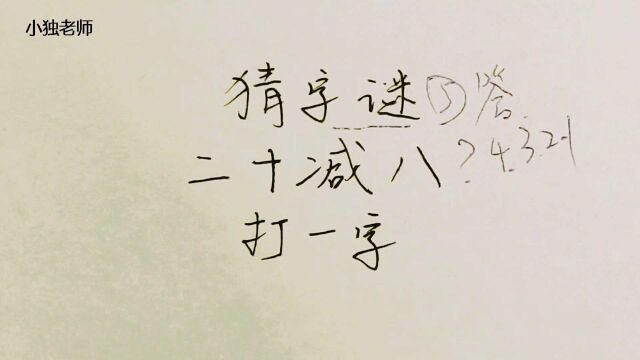 小独老师
猜字谜⑤答
二十减八?4.3.2.1
打一字